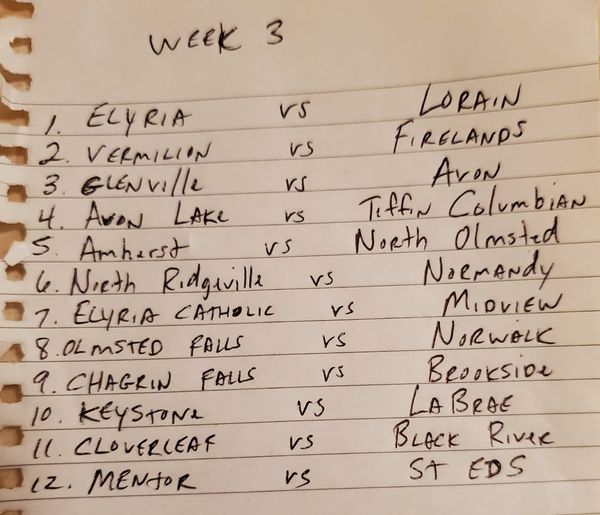 WEEK 3
1. ELYRIA vs LORAIN
2. VERMILION vs FIRELANDS
3. GLENVille vs AVON
4. AVON LAKE vs Tiffin Columbian
5. Amherst vs North Olmsted
6. North Ridgeville vs NORMANDY
7. ELYRIA CATHOLIC vs MIDVIEW
8. OLMSTED FALLS vs NORWALK
9. CHAGRIN FALLS vs BROOKSIDE
10. KEYSTONE vs LABRAE
11. CLOVERLEAF vs BLACK RIVER
12. MENTOR vs ST EDS